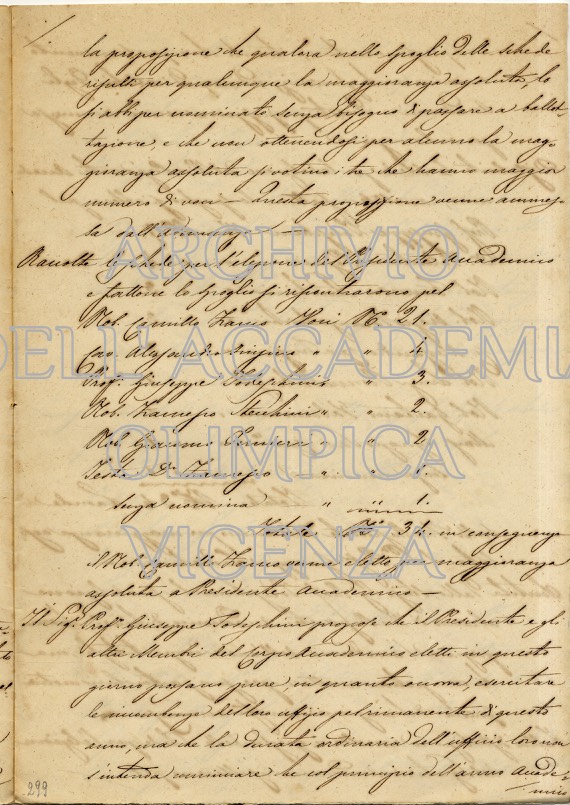 la proposizione che qualora nello spoglio delle schede
risulti per qualunque la maggioranza assoluta, lo
si abbi per nominato senza bisogno di passare a ballot
tazione, e che non ottenendosi per alcuno la mag-
gioranza assoluta si votino i tre che hanno maggior
numero di voci — Questa proposizione venne ammes-
sa dall'adunanza —
ARCHIVIO
Raccolte le schede per l'elezione del Presidente Accademico
e fattone lo spoglio si riscontrarono pel
Nob. Camillo Franco Voti N.° 21.
DELL'ACCADEMIA
Cav. Alessandro " " 4.
Prof. Giuseppe Todeschini " 3.
Nob. Francesco " " 2.
Nob. Giacomo " " 2
OLIMPICA
Testa Dr. Francesco " " 1.
senza nomina " " 1.
Totale N.° 34. in conseguenza
VICENZA
il Nob. Camillo Franco venne eletto per maggioranza
assoluta a Presidente Accademico —
Il Sig. Prof. Giuseppe Todeschini propose che il Presidente e gli
altri Membri del Corpo Accademico eletti in questo
giorno possano pure, in quanto occorra, esercitare
le incombenze del loro uffizio pel rimanente di questo
anno, ma che la durata ordinaria dell'uffizio loro non
s'intenda cominciare che col principio dell'anno Accade-
mico
299